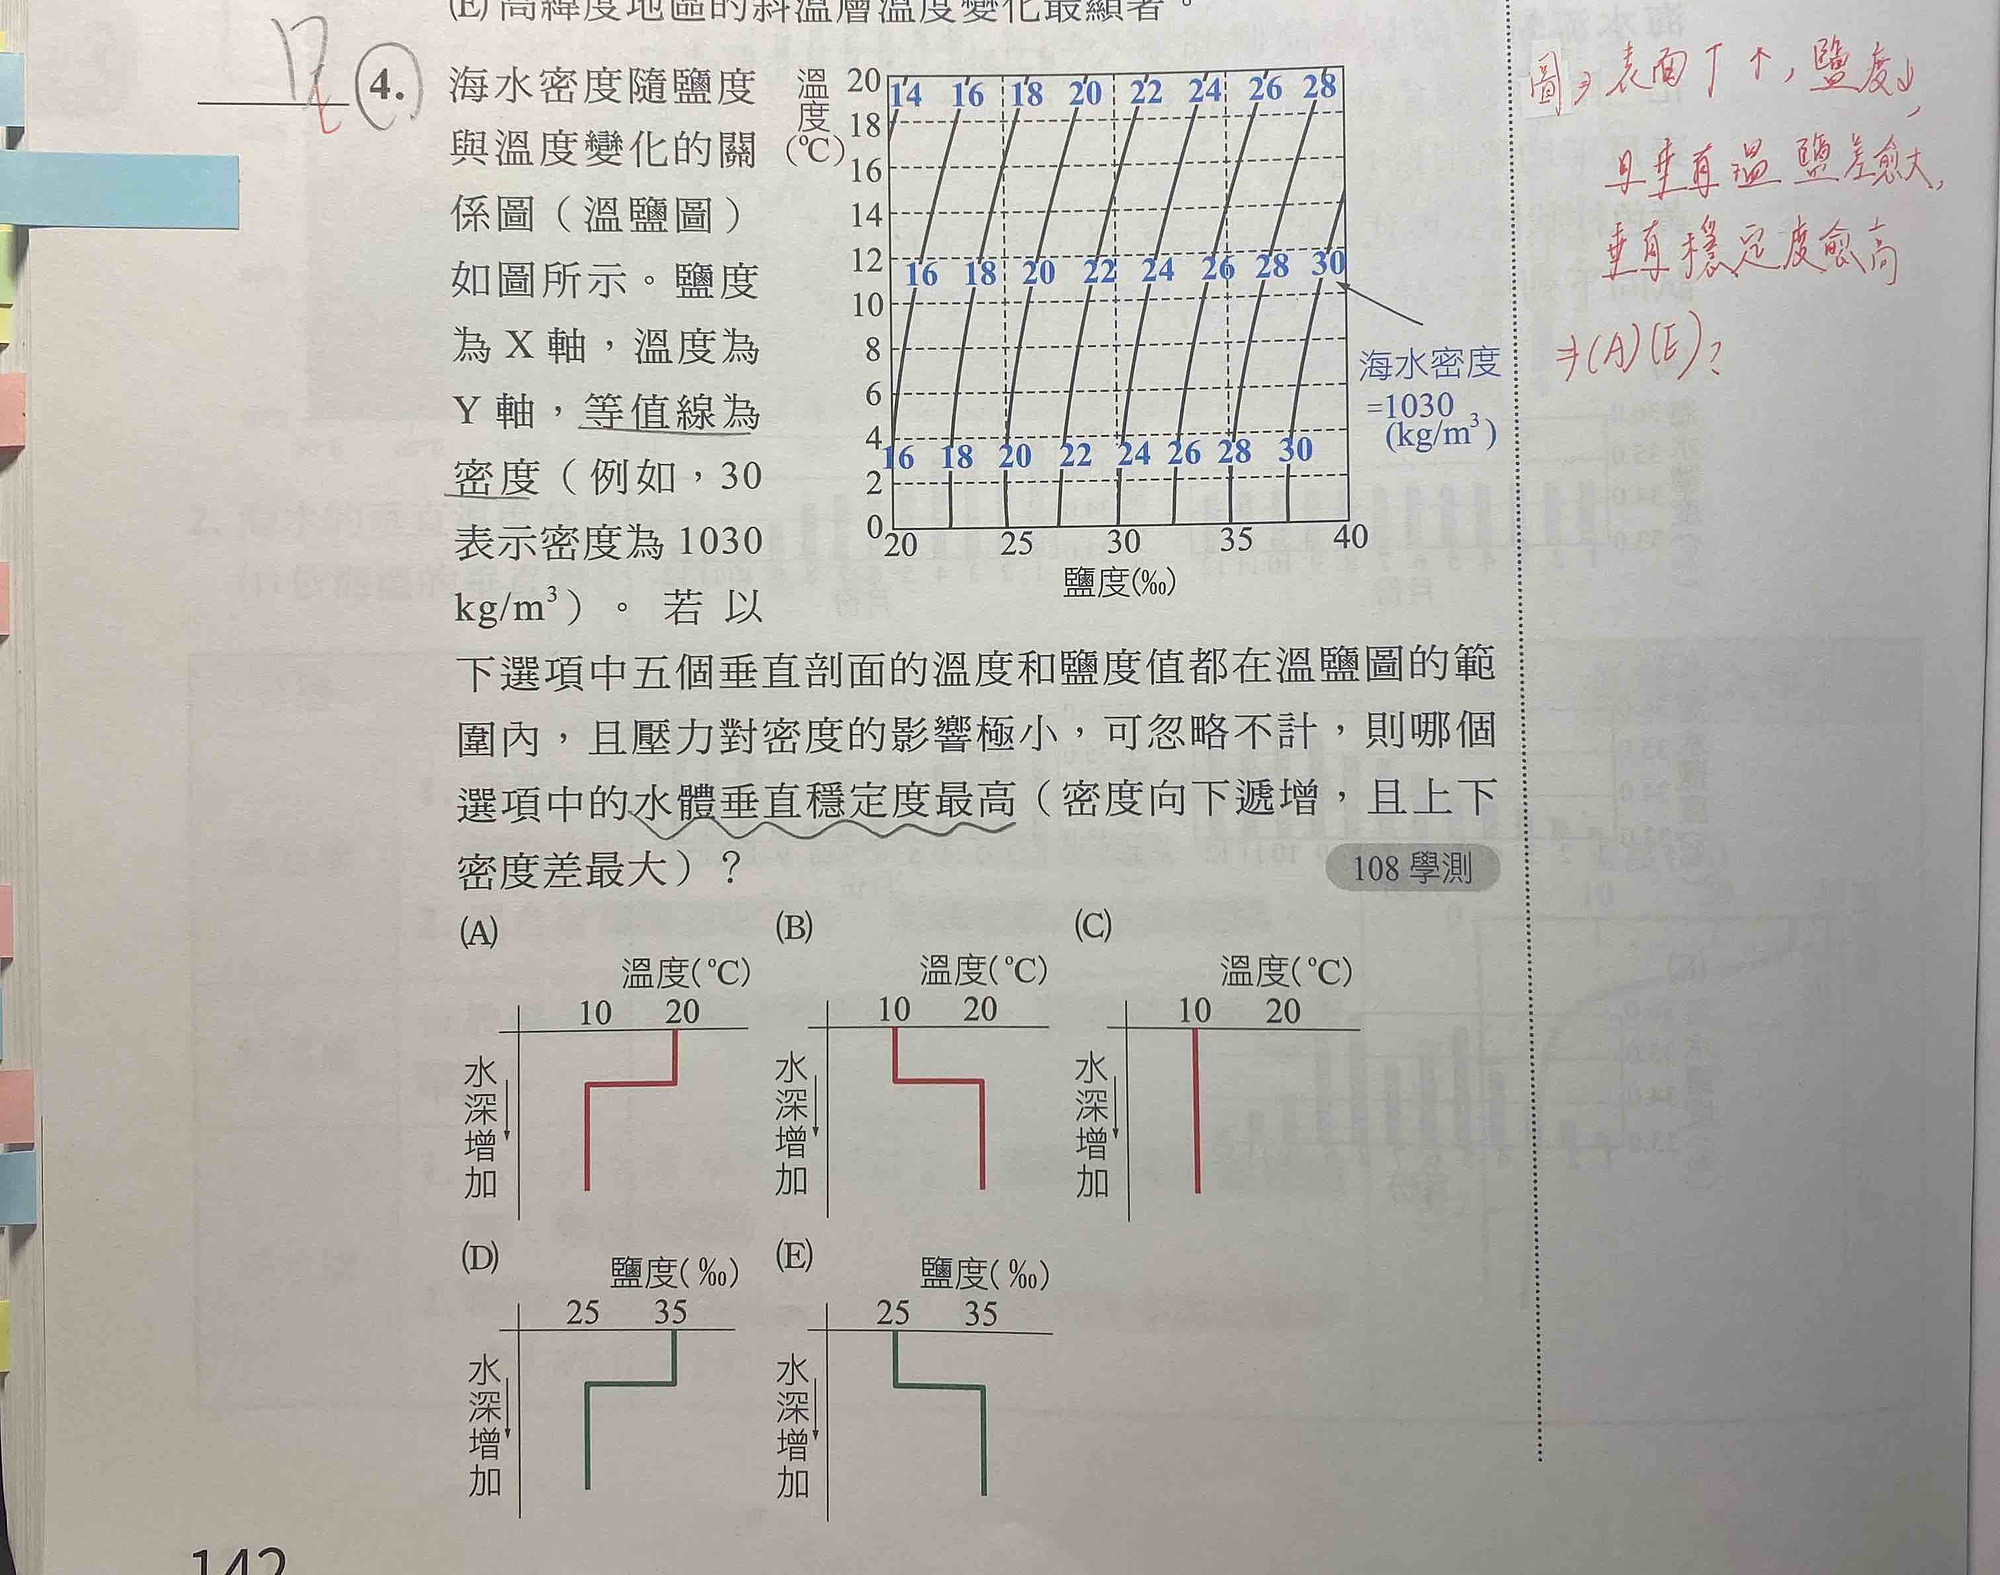 (E) 高緯度地區的斜溫層溫度變化最顯著。
4. 海水密度隨鹽度
與溫度變化的關
係圖（溫鹽圖）
如圖所示。鹽度
為 X 軸，溫度為
Y 軸，等值線為
密度（例如，30
表示密度為 1030
kg/m³）。若以
下選項中五個垂直剖面的溫度和鹽度值都在溫鹽圖的範
圍內，且壓力對密度的影響極小，可忽略不計，則哪個
選項中的水體垂直穩定度最高（密度向下遞增，且上下
密度差最大）？
108 學測
溫度(℃)
20
18
16
14
12
10
8
6
4
2
0
14 16 18 20 22 24 26 28
16 18 20 22 24 26 28 30
16 18 20 22 24 26 28 30
20 25 30 35 40
鹽度(‰)
海水密度
=1030
(kg/m³)
圖⇒表面T↑，鹽度↓，
且垂直溫鹽差愈大，
垂直穩定度愈高
⇒(A)(E)?
(A)
溫度(℃)
10 20
水深增加
(B)
溫度(℃)
10 20
水深增加
(C)
溫度(℃)
10 20
水深增加
(D)
鹽度(‰)
25 35
水深增加
(E)
鹽度(‰)
25 35
水深增加
142